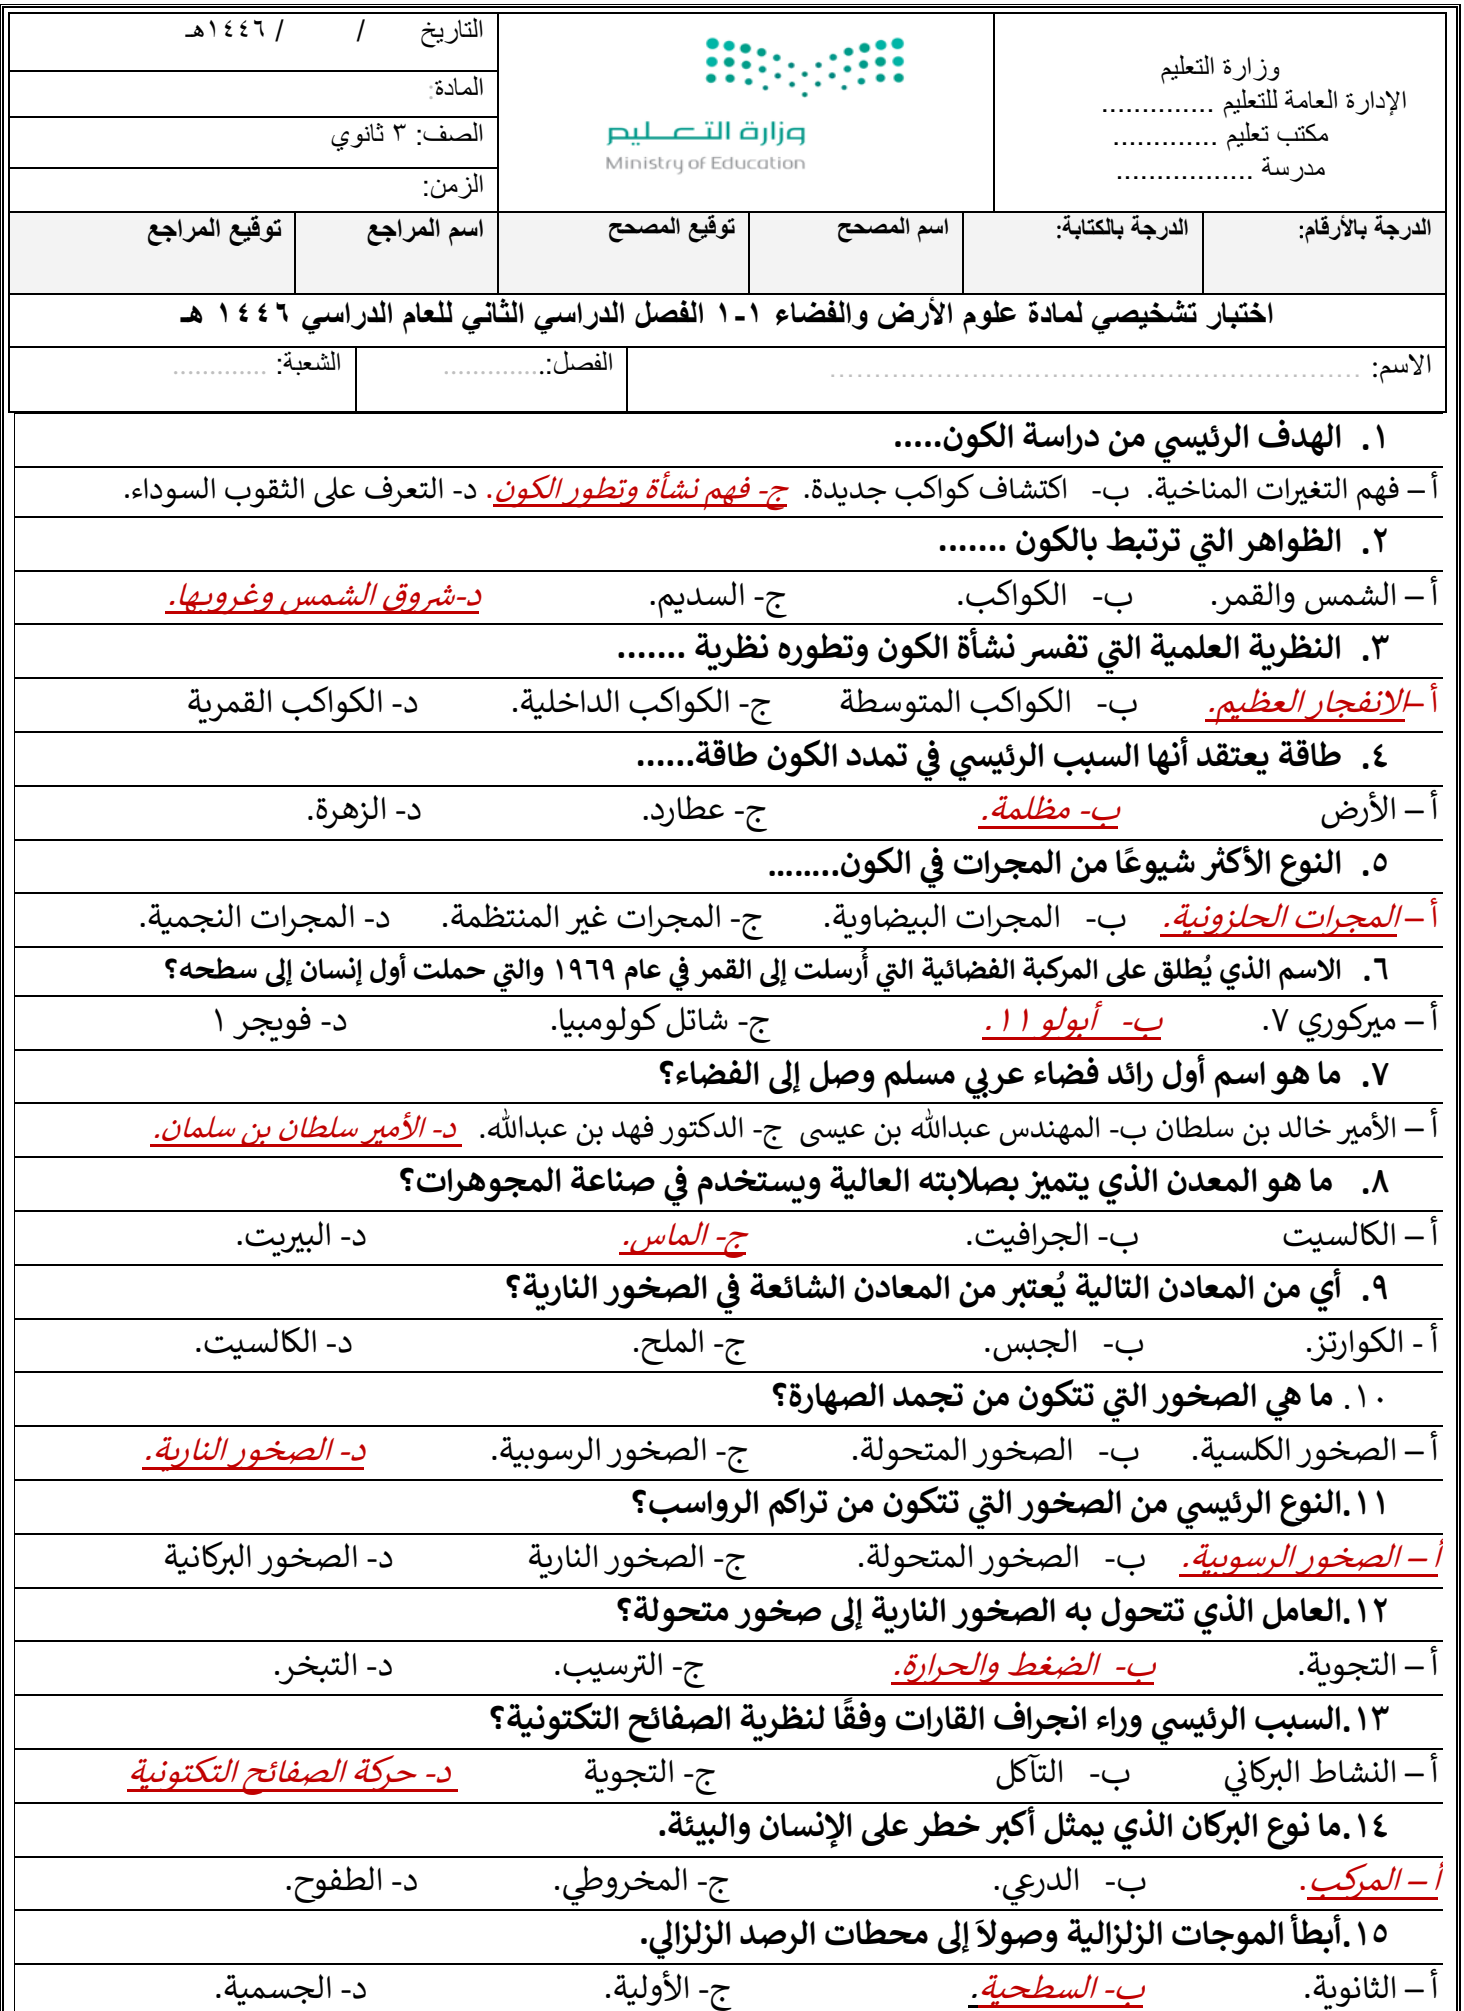 وزارة التعليم
الإدارة العامة للتعليم ..............
مكتب تعليم .............
مدرسة .................
وزارة التعليم
Ministry of Education
التاريخ / / ١٤٤٦هـ
المادة:
الصف: ٣ ثانوي
الزمن:
الدرجة بالأرقام: الدرجة بالكتابة: اسم المصحح توقيع المصحح اسم المراجع توقيع المراجع
اختبار تشخيصي لمادة علوم الأرض والفضاء ١-١ الفصل الدراسي الثاني للعام الدراسي ١٤٤٦ هـ
الاسم: ............................................................ الفصل:.............. الشعبة: .............
١. الهدف الرئيسي من دراسة الكون.....
أ – فهم التغيرات المناخية. ب- اكتشاف كواكب جديدة. ج- فهم نشأة وتطور الكون. د- التعرف على الثقوب السوداء.
٢. الظواهر التي ترتبط بالكون .......
أ – الشمس والقمر. ب- الكواكب. ج- السديم. د-شروق الشمس وغروبها.
٣. النظرية العلمية التي تفسر نشأة الكون وتطوره نظرية .......
أ –الانفجار العظيم. ب- الكواكب المتوسطة ج- الكواكب الداخلية. د- الكواكب القمرية
٤. طاقة يعتقد أنها السبب الرئيسي في تمدد الكون طاقة......
أ – الأرض ب- مظلمة. ج- عطارد. د- الزهرة.
٥. النوع الأكثر شيوعًا من المجرات في الكون........
أ – المجرات الحلزونية. ب- المجرات البيضاوية. ج- المجرات غير المنتظمة. د- المجرات النجمية.
٦. الاسم الذي يُطلق على المركبة الفضائية التي أُرسلت إلى القمر في عام ١٩٦٩ والتي حملت أول إنسان إلى سطحه؟
أ – ميركوري ٧. ب- أبولو ١١. ج- شاتل كولومبيا. د- فويجر ١
٧. ما هو اسم أول رائد فضاء عربي مسلم وصل إلى الفضاء؟
أ – الأمير خالد بن سلطان ب- المهندس عبدالله بن عيسى ج- الدكتور فهد بن عبدالله. د- الأمير سلطان بن سلمان.
٨. ما هو المعدن الذي يتميز بصلابته العالية ويستخدم في صناعة المجوهرات؟
أ – الكالسيت ب- الجرافيت. ج- الماس. د- البيريت.
٩. أي من المعادن التالية يُعتبر من المعادن الشائعة في الصخور النارية؟
أ - الكوارتز. ب- الجبس. ج- الملح. د- الكالسيت.
١٠. ما هي الصخور التي تتكون من تجمد الصهارة؟
أ – الصخور الكلسية. ب- الصخور المتحولة. ج- الصخور الرسوبية. د- الصخور النارية.
١١.النوع الرئيسي من الصخور التي تتكون من تراكم الرواسب؟
أ – الصخور الرسوبية. ب- الصخور المتحولة. ج- الصخور النارية د- الصخور البركانية
١٢.العامل الذي تتحول به الصخور النارية إلى صخور متحولة؟
أ – التجوية. ب- الضغط والحرارة. ج- الترسيب. د- التبخر.
١٣.السبب الرئيسي وراء انجراف القارات وفقًا لنظرية الصفائح التكتونية؟
أ – النشاط البركاني ب- التآكل ج- التجوية د- حركة الصفائح التكتونية
١٤.ما نوع البركان الذي يمثل أكبر خطر على الإنسان والبيئة.
أ – المركب. ب- الدرعي. ج- المخروطي. د- الطفوح.
١٥.أبطأ الموجات الزلزالية وصولاَ إلى محطات الرصد الزلزالي.
أ – الثانوية. ب- السطحية. ج- الأولية. د- الجسمية.